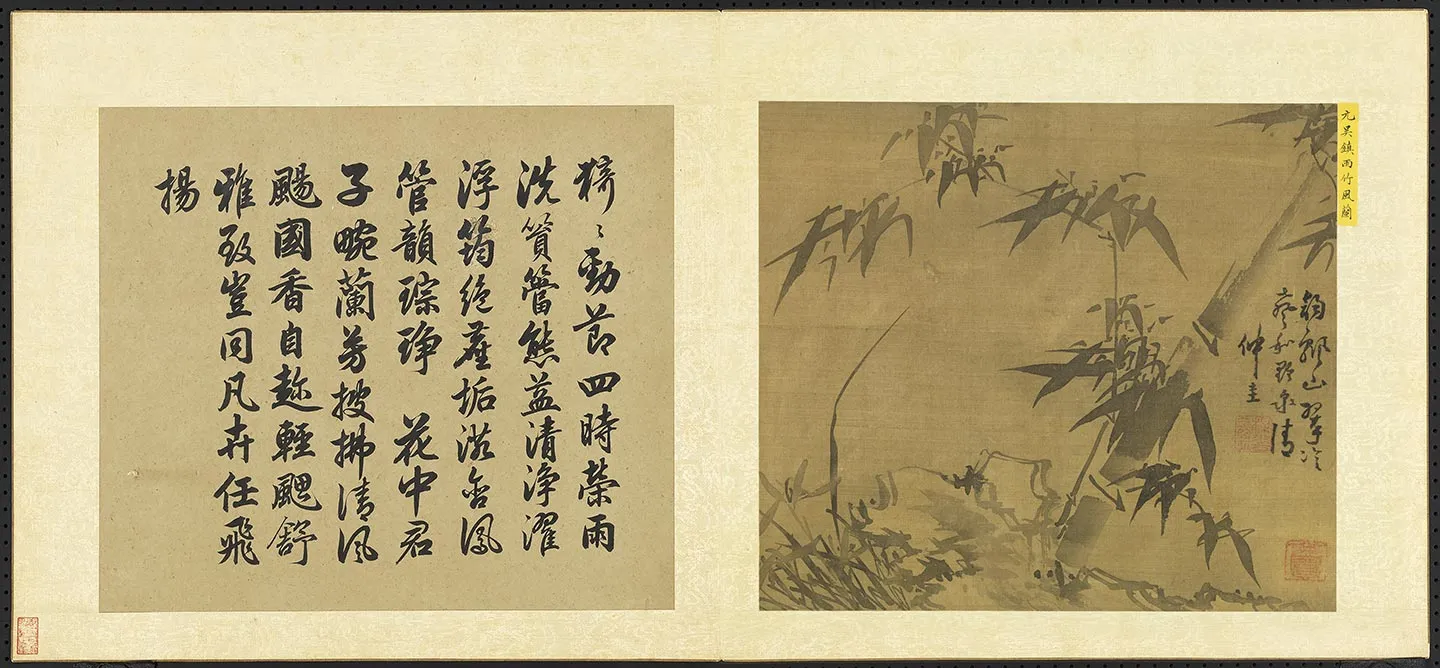 元吳鎮雨竹風蘭
飄山翠冷
聲和野泉清
仲圭
猗〻勁節四時榮雨
洗篔簹態益清淨濯
浮筠絕塵垢滋含鳳
管韻琮琤 花中君
子畹蘭芳披拂清風
颺國香自趂輕颸舒
雅致豈同凡卉任飛
揚